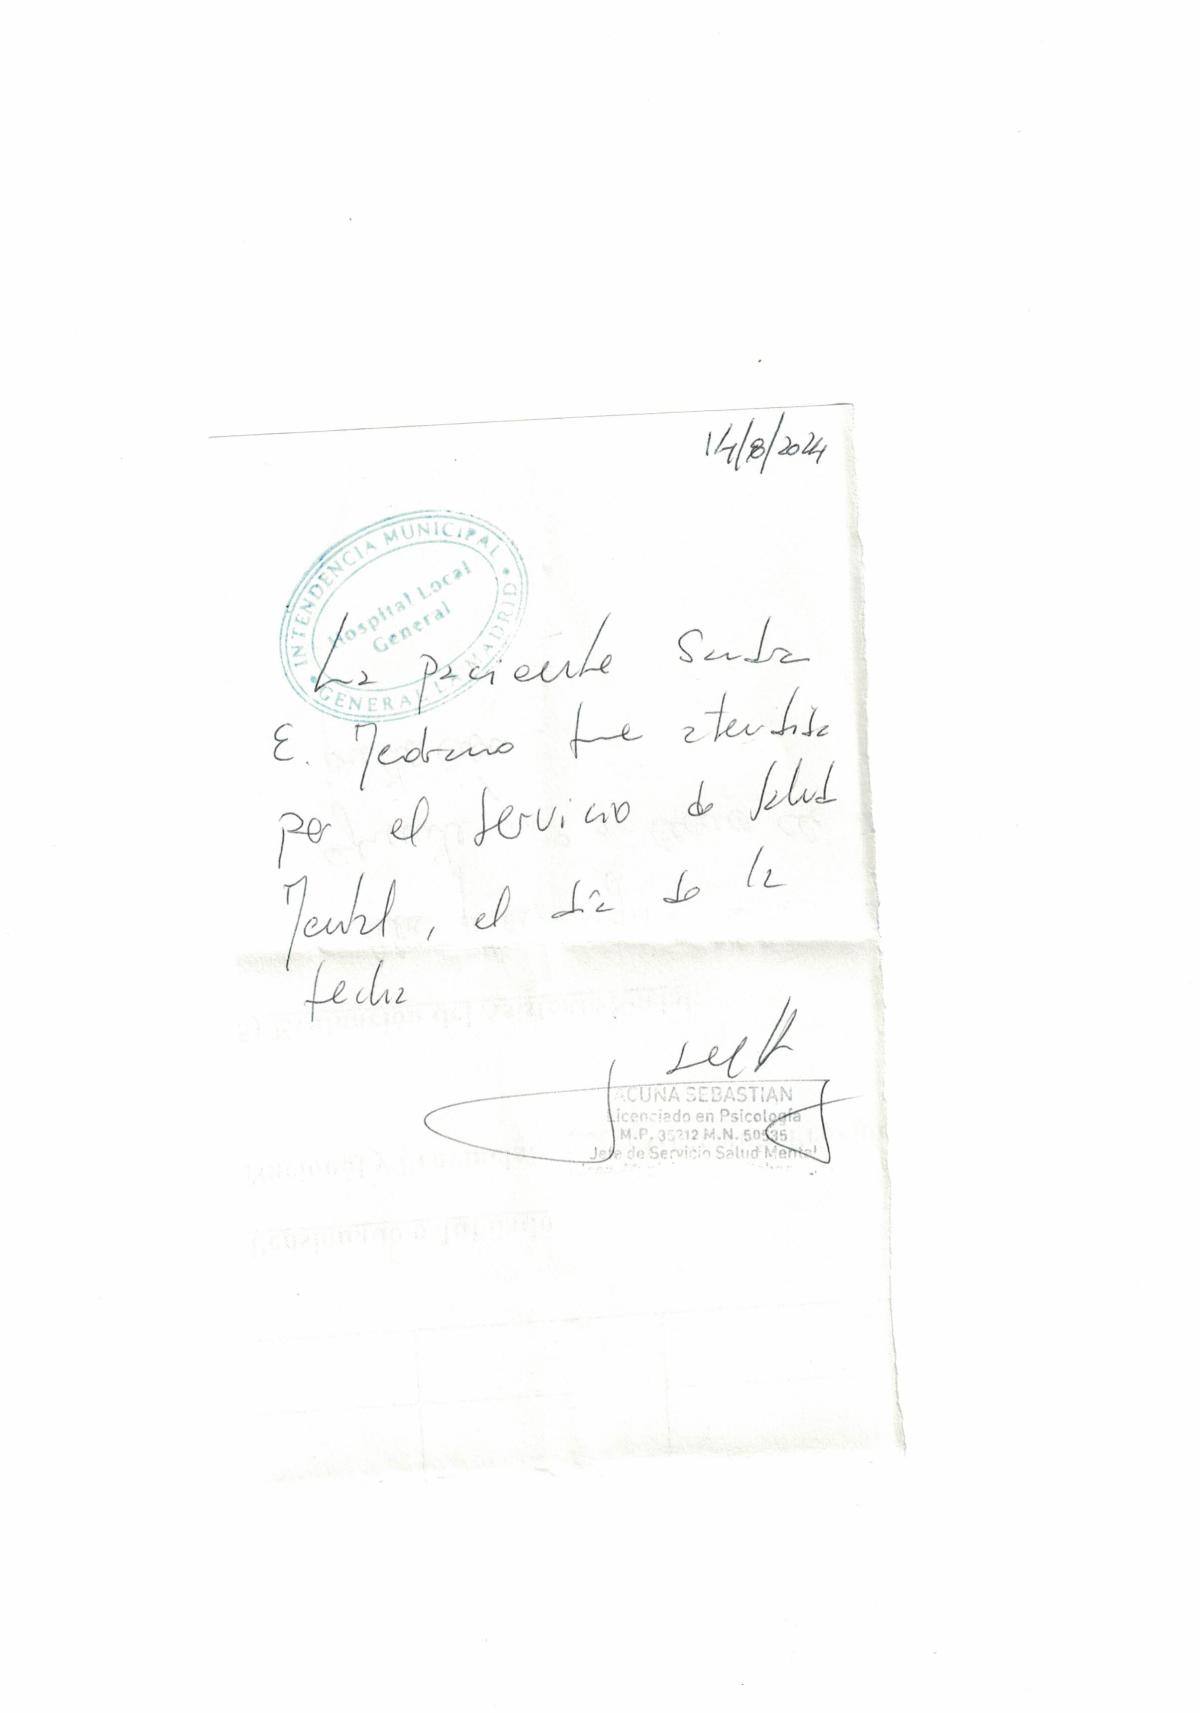 14/8/2024
INTENDENCIA MUNICIPAL
Hospital Local
General
GENERAL LA MADRID
La paciente Sandra
E. Medrano fue atendida
por el servicio de salud
Mental, el día de la
fecha
ACUÑA SEBASTIAN
Licenciado en Psicología
M.P. 35212 M.N. 50535
Jefe de Servicio Salud Mental